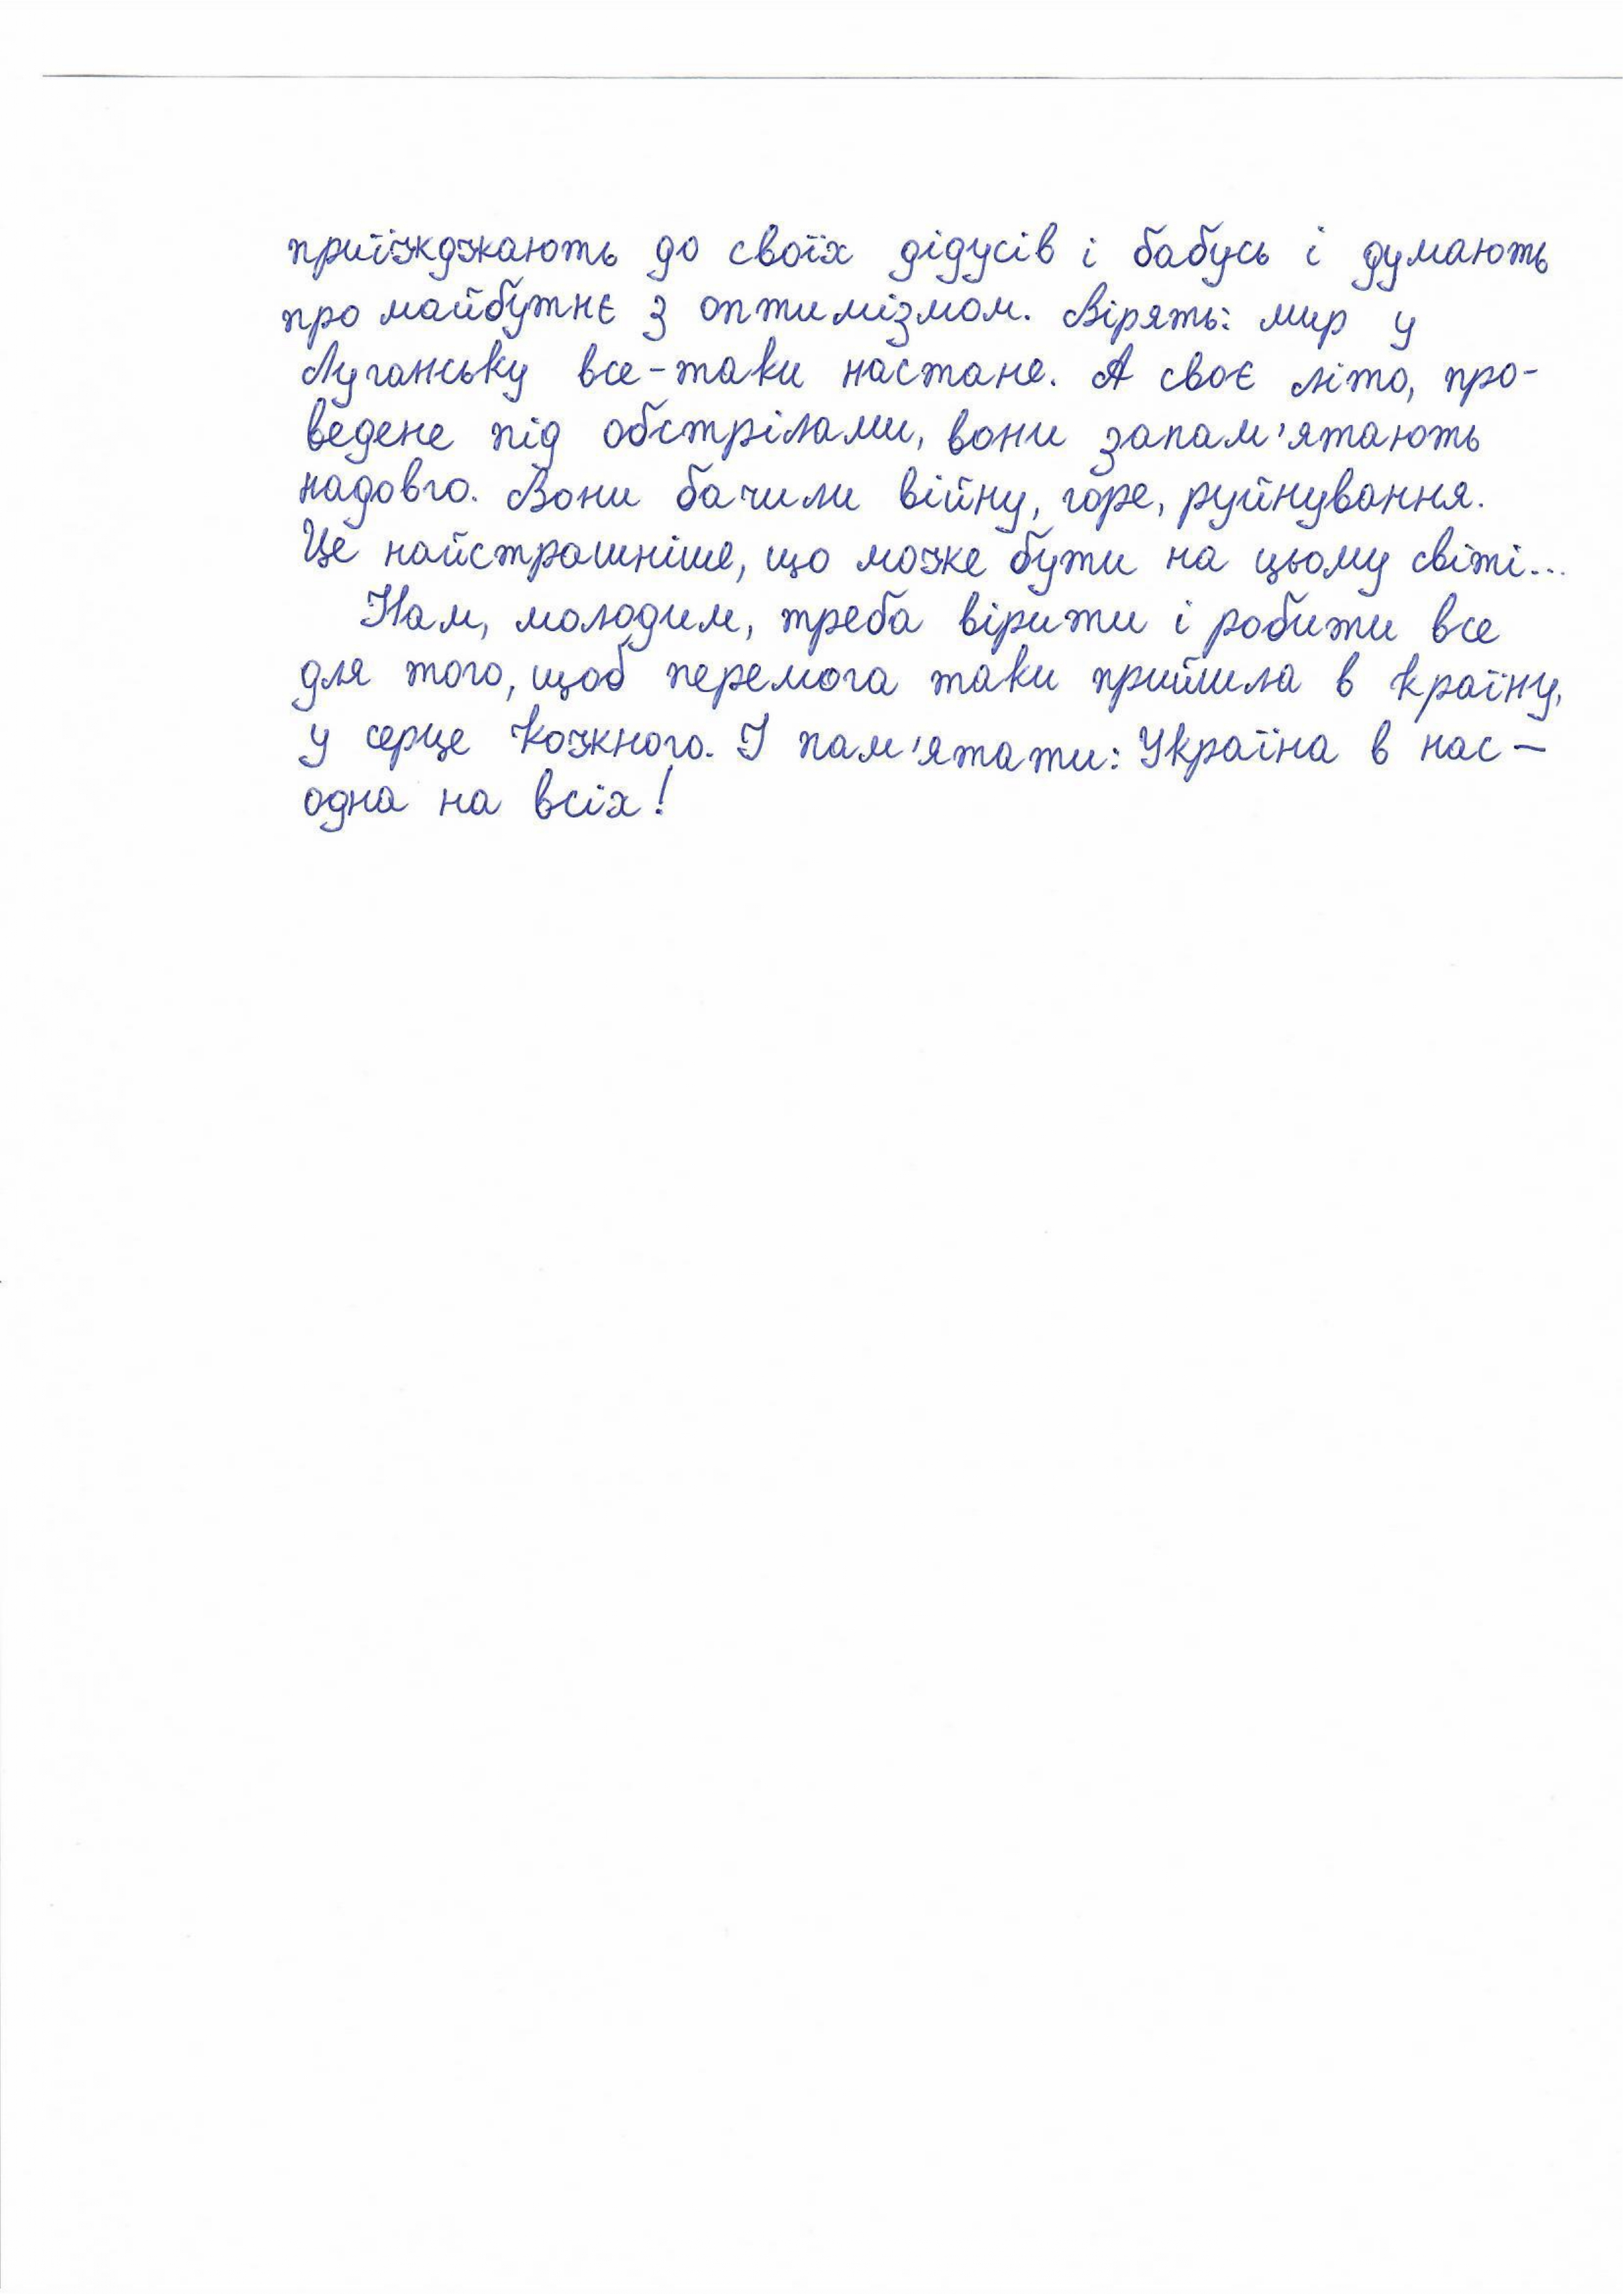 приїжджають до своїх дідусів і бабусь і думають
про майбутнє з оптимізмом. Вірять: мир у
Луганську все-таки настане. А своє літо, про-
ведене під обстрілами, вони запам'ятають
надовго. Вони бачили війну, горе, руйнування.
Це найстрашніше, що може бути на цьому світі...
Нам, молодим, треба вірити і робити все
для того, щоб перемога таки прийшла в країну,
у серце кожного. І пам'ятати: Україна в нас –
одна на всіх!